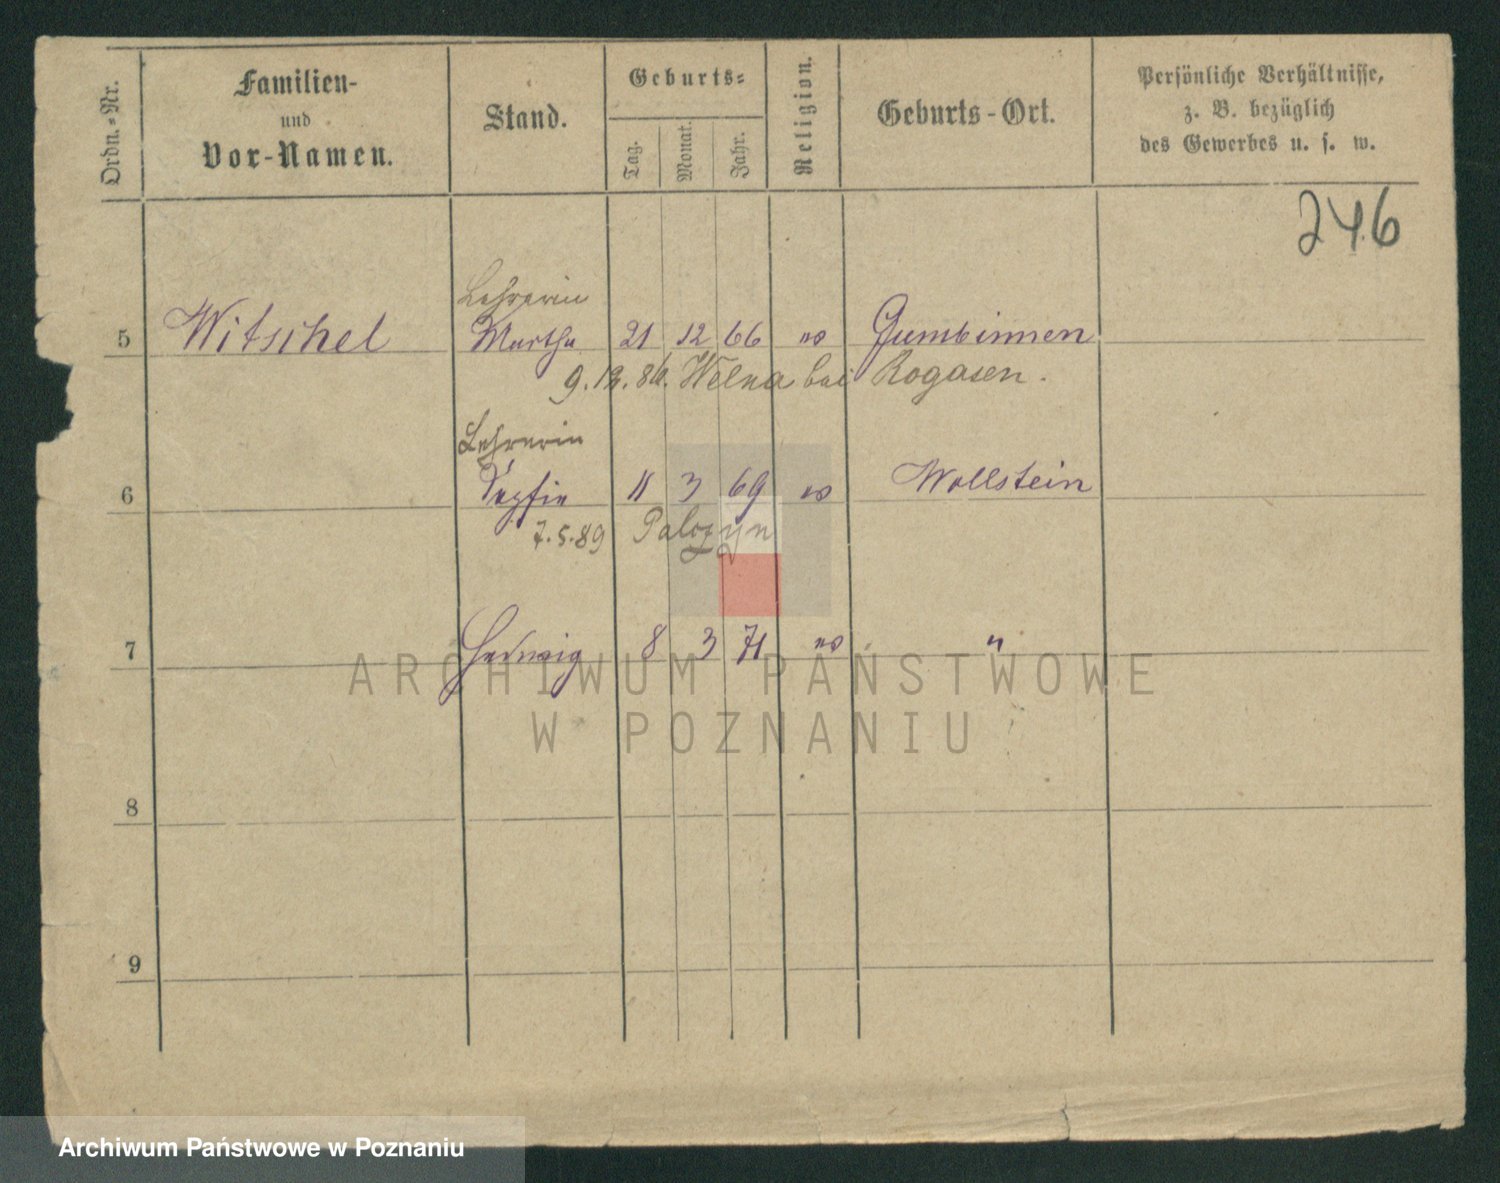 Ordn.-Nr. Familien- und Vor-Namen. Stand. Geburts- Tag. Monat. Jahr. Religion. Geburts-Ort. Persönliche Verhältnisse, z. B. bezüglich des Gewerbes u. s. w.
246
Lehrerin
5 Witschel Martha 21 12 66 " Gumbinnen
9.12.86. Welna bei Rogasen.
Lehrerin
6 Sophie 11 3 69 " Wollstein
7.5.89 Palczyn
7 Hedwig 8 3 71 " "
ARCHIWUM PAŃSTWOWE
W POZNANIU
8
9
Archiwum Państwowe w Poznaniu